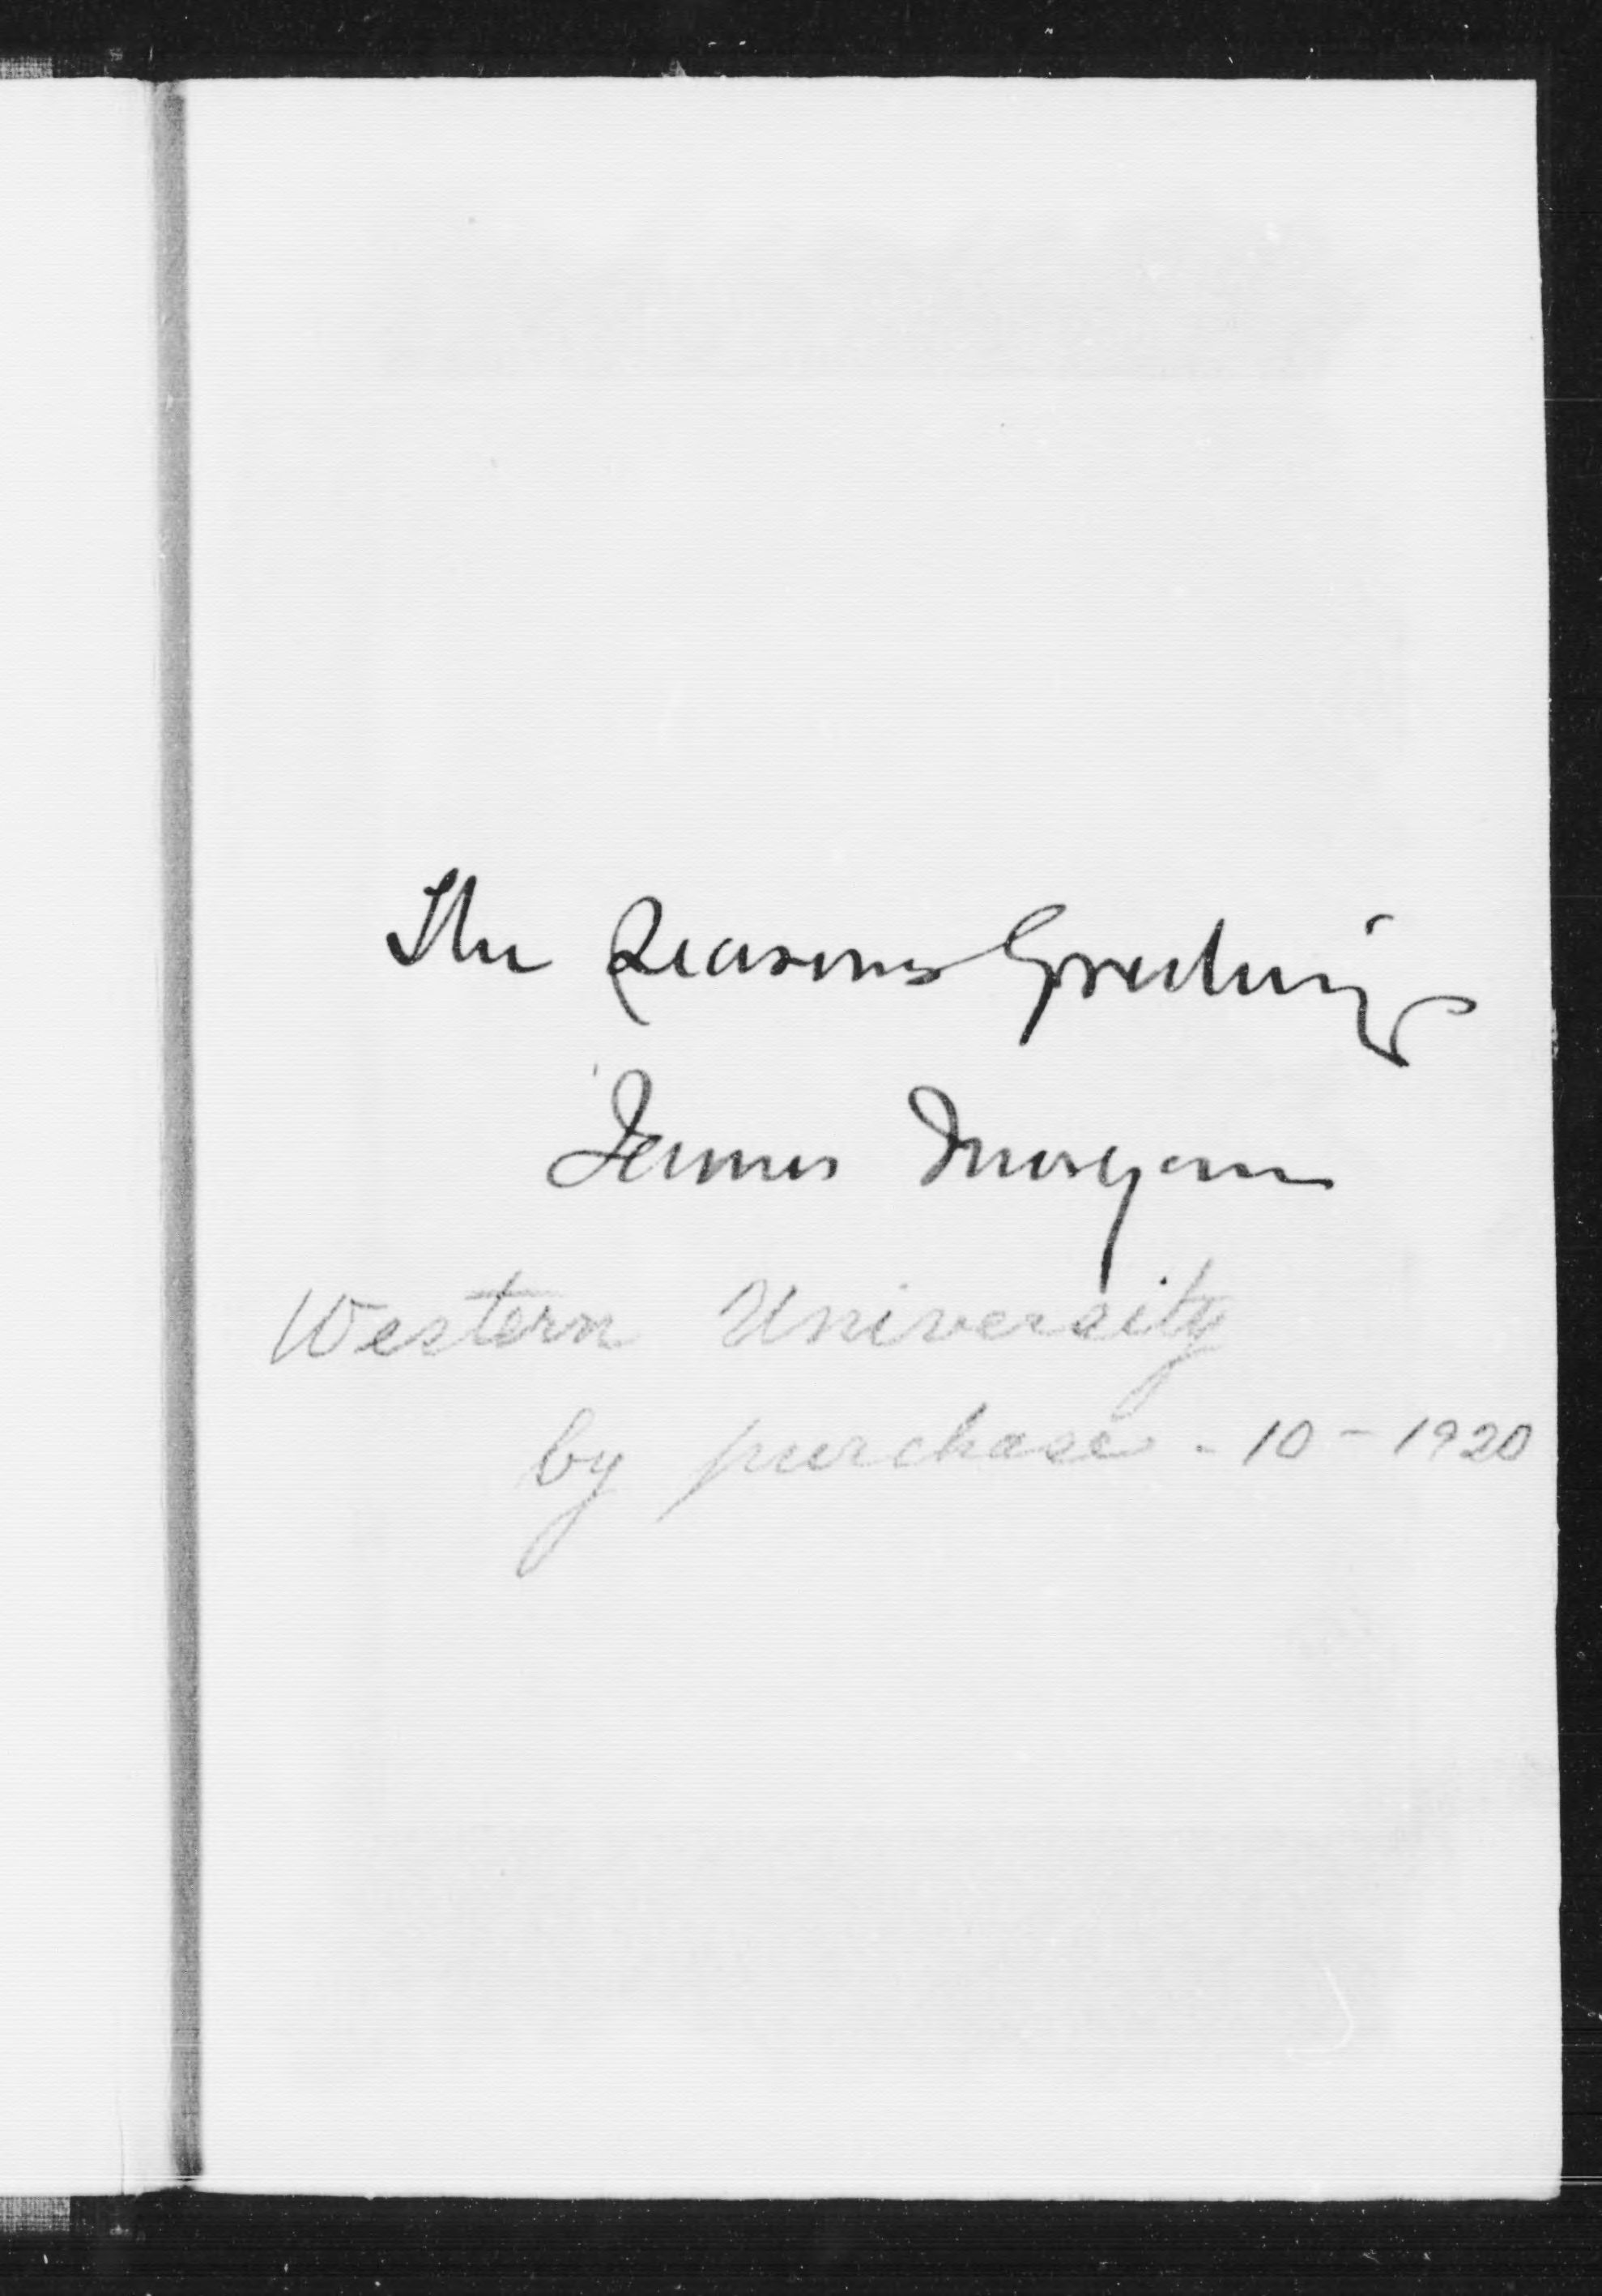 The Seasons Greetings
James Morgan
Western University
by purchase - 10 - 1920